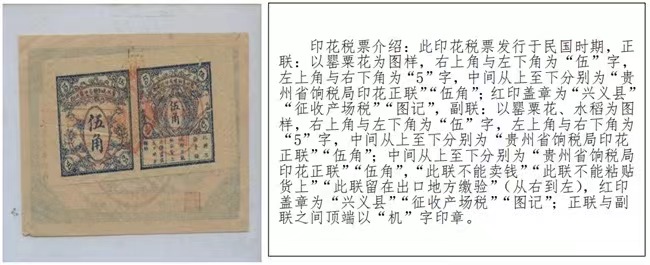 伍角
伍角
印花税票介绍：此印花税票发行于民国时期，正
联：以罂粟花为图样，右上角与左下角为“伍”字，
左上角与右下角为“5”字，中间从上至下分别为“贵
州省饷税局印花正联”“伍角”；红印盖章为“兴义县”
“征收产场税”“图记”，副联：以罂粟花、水稻为图
样，右上角与左下角为“伍”字，左上角与右下角为
“5”字，中间从上至下分别为“贵州省饷税局印花
正联”“伍角”；中间从上至下分别为“贵州省饷税局
印花正联”“伍角”，“此联不能卖钱”“此联不能粘贴
货上”“此联留在出口地方缴验”（从右到左），红印
盖章为“兴义县”“征收产场税”“图记”；正联与副
联之间顶端以“机”字印章。